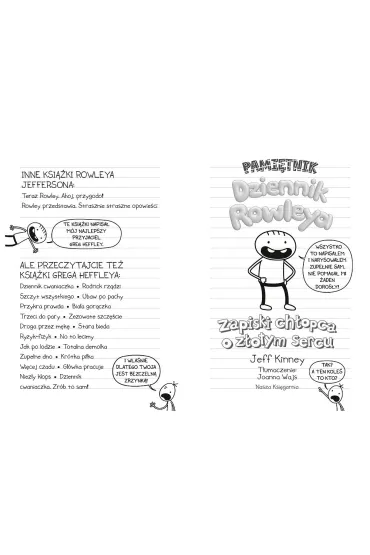 INNE KSIĄŻKI ROWLEYA
JEFFERSONA:
Teraz Rowley. Ahoj, przygodo!
Rowley przedstawia. Strasznie straszne opowieści
TE KSIĄŻKI NAPISAŁ
MÓJ NAJLEPSZY
PRZYJACIEL,
GREG HEFFLEY.
ALE PRZECZYTAJCIE TEŻ
KSIĄŻKI GREGA HEFFLEYA:
Dziennik cwaniaczka • Rodrick rządzi
Szczyt wszystkiego • Ubaw po pachy
Przykra prawda • Biała gorączka
Trzeci do pary • Zezowate szczęście
Droga przez mękę • Stara bieda
Ryzyk-fizyk • No to lecimy
Jak po lodzie • Totalna demolka
Zupełne dno • Krótka piłka
Więcej czadu • Głowka pracuje
Niezły klops • Dziennik
cwaniaczka. Zrób to sam!
I WŁAŚNIE
DLATEGO TWOJA
JEST BEZCZELNĄ
ZRZYNKĄ!
PAMIĘTNIK
Dziennik
Rowleya
WSZYSTKO
TO NAPISAŁEM
I NARYSOWAŁEM
ZUPEŁNIE SAM,
NIE POMAGAŁ MI
ŻADEN
DOROSŁY!
Zapiski chłopca
o złotym sercu
Jeff Kinney
Tłumaczenie:
Joanna Wajs
Nasza Księgarnia
TAK?
A TEN KOLEŚ
TO KTO?